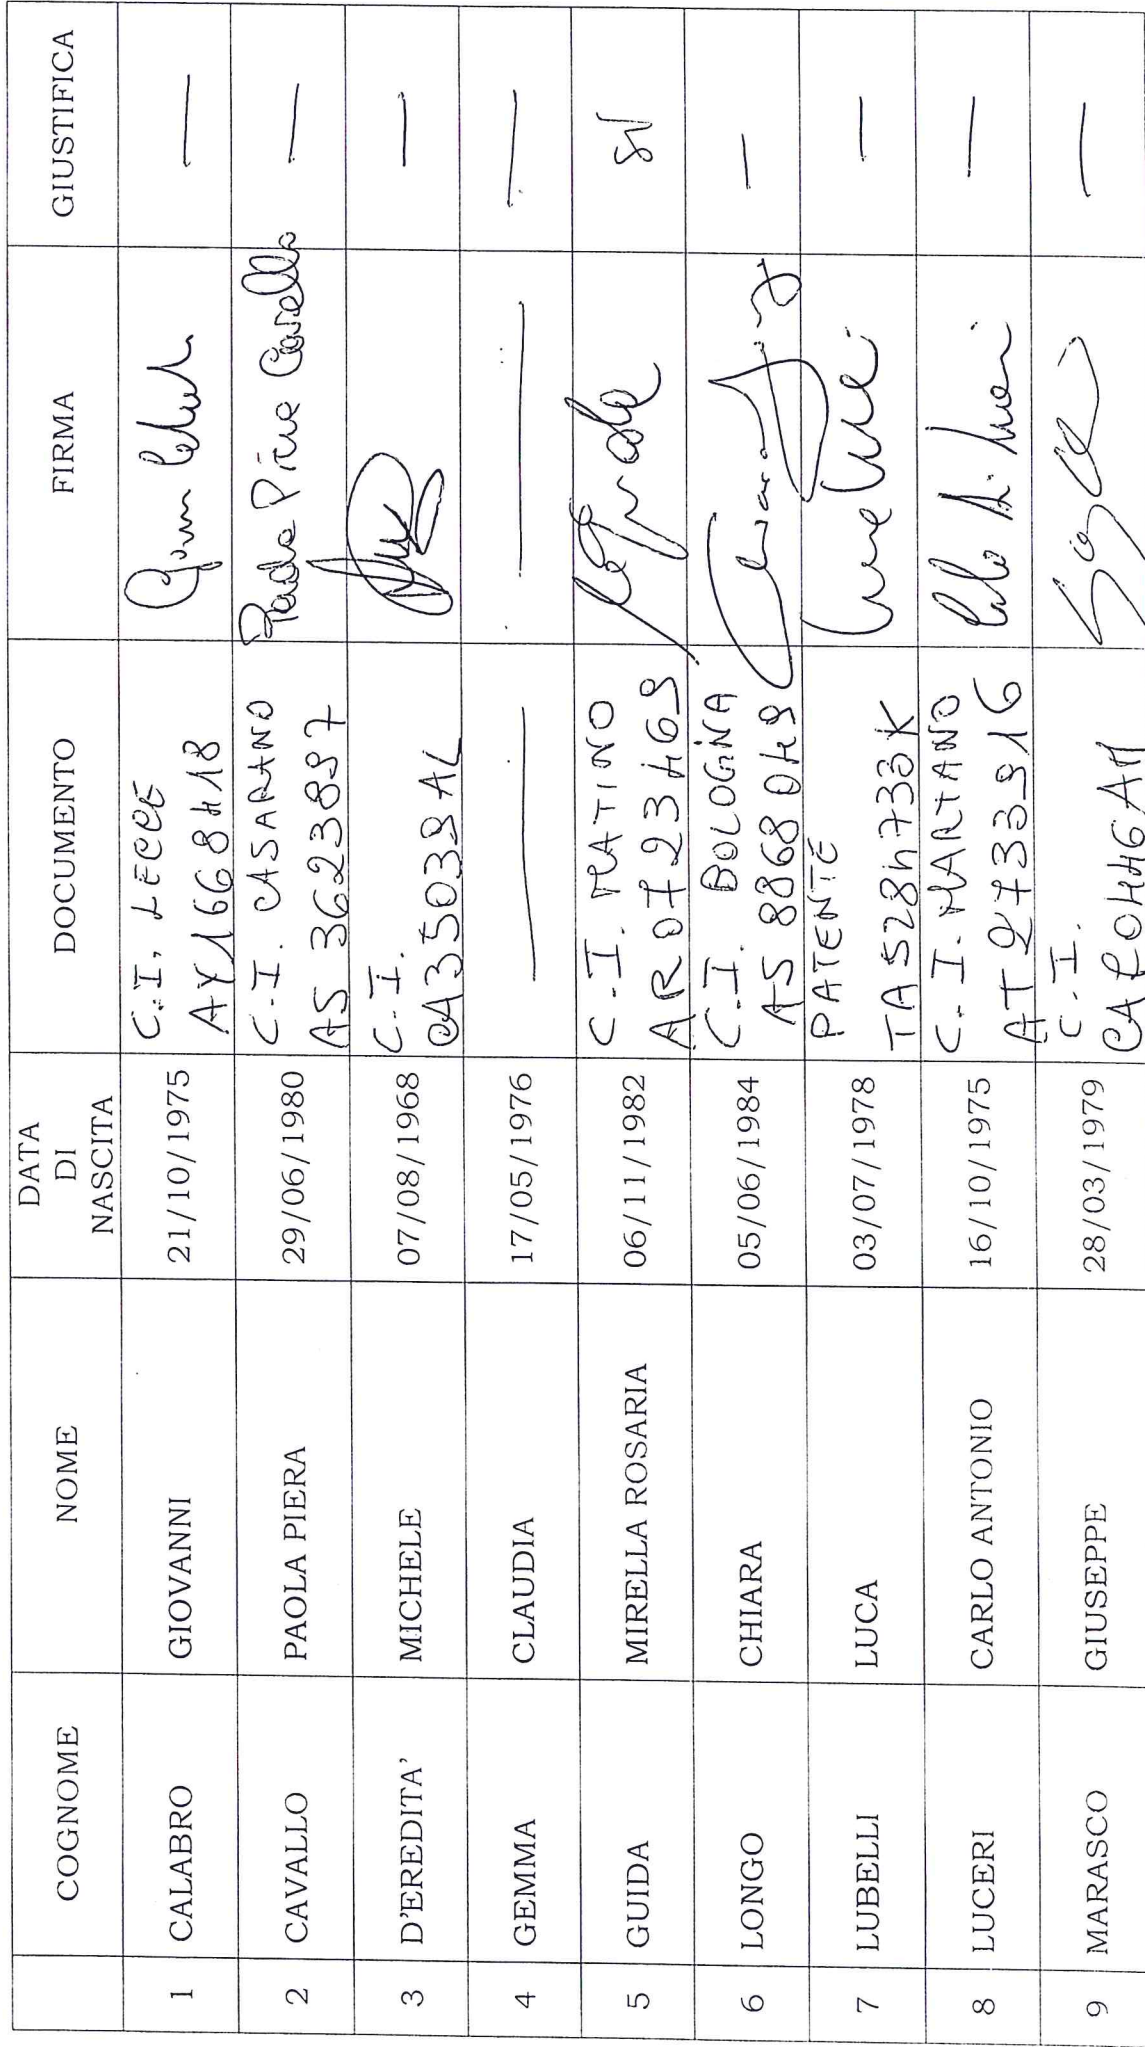 COGNOME NOME DATA DI NASCITA DOCUMENTO FIRMA GIUSTIFICA
1 CALABRO GIOVANNI 21/10/1975 C.I. LECCE
AY1668418
—
2 CAVALLO PAOLA PIERA 29/06/1980 C.I. CASARANO Paola Piera Cavallo —
AS 3623897
3 D'EREDITA' MICHELE 07/08/1968 C.I.
CA35039AL
—
4 GEMMA CLAUDIA 17/05/1976 — — —
5 GUIDA MIRELLA ROSARIA 06/11/1982 C.I. MATINO
AR0723469
SI
6 LONGO CHIARA 05/06/1984 C.I. BOLOGNA
AS 8868049
—
7 LUBELLI LUCA 03/07/1978 PATENTE
TA528h733K
—
8 LUCERI CARLO ANTONIO 16/10/1975 C.I. MARTANO
AT2733916
—
9 MARASCO GIUSEPPE 28/03/1979 C.I.
—